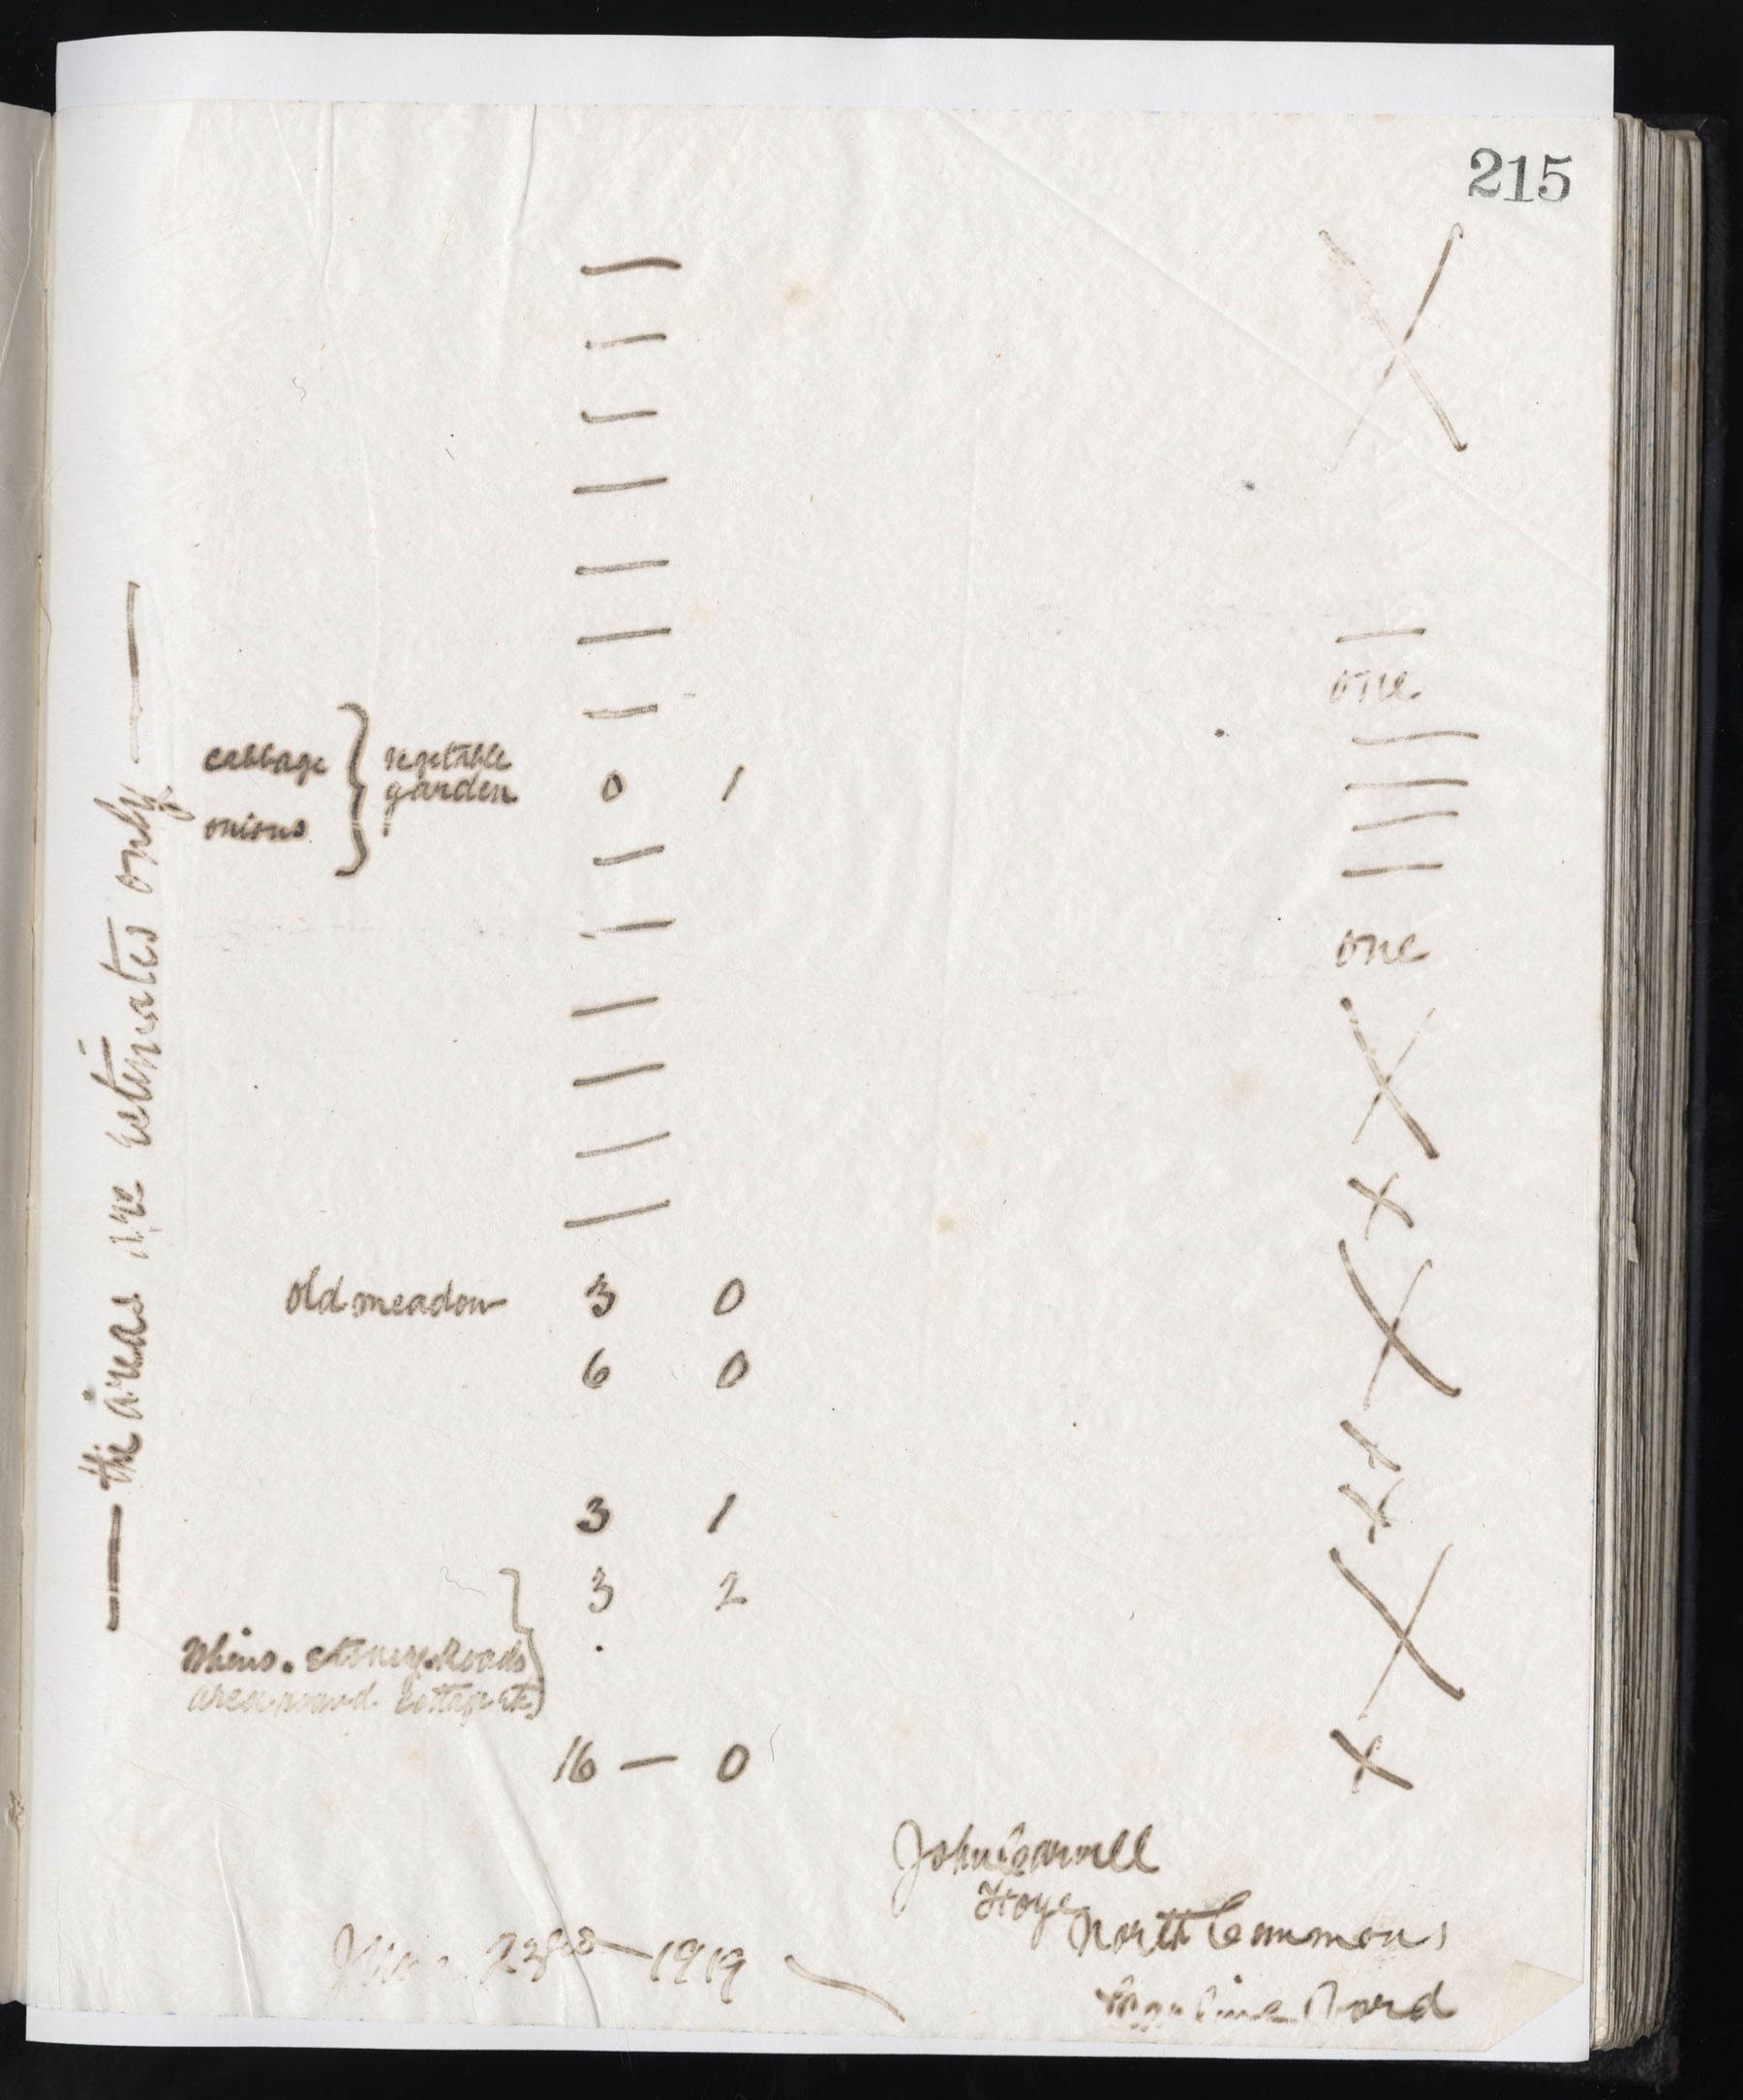 215
—
—
—
—
—
—
—
one
—
cabbage } vegetable
garden 0 1
onions
—
—
—
—
—
—
one
—
—
—
—
X
— the areas are estimates only —
old meadow 3 0
6 0
3 1
3 2
Whins. stoney. Roads
area round Cottage etc
16 — 0
John Carvill
Hoye
North Commons
Road
June 23rd — 1919